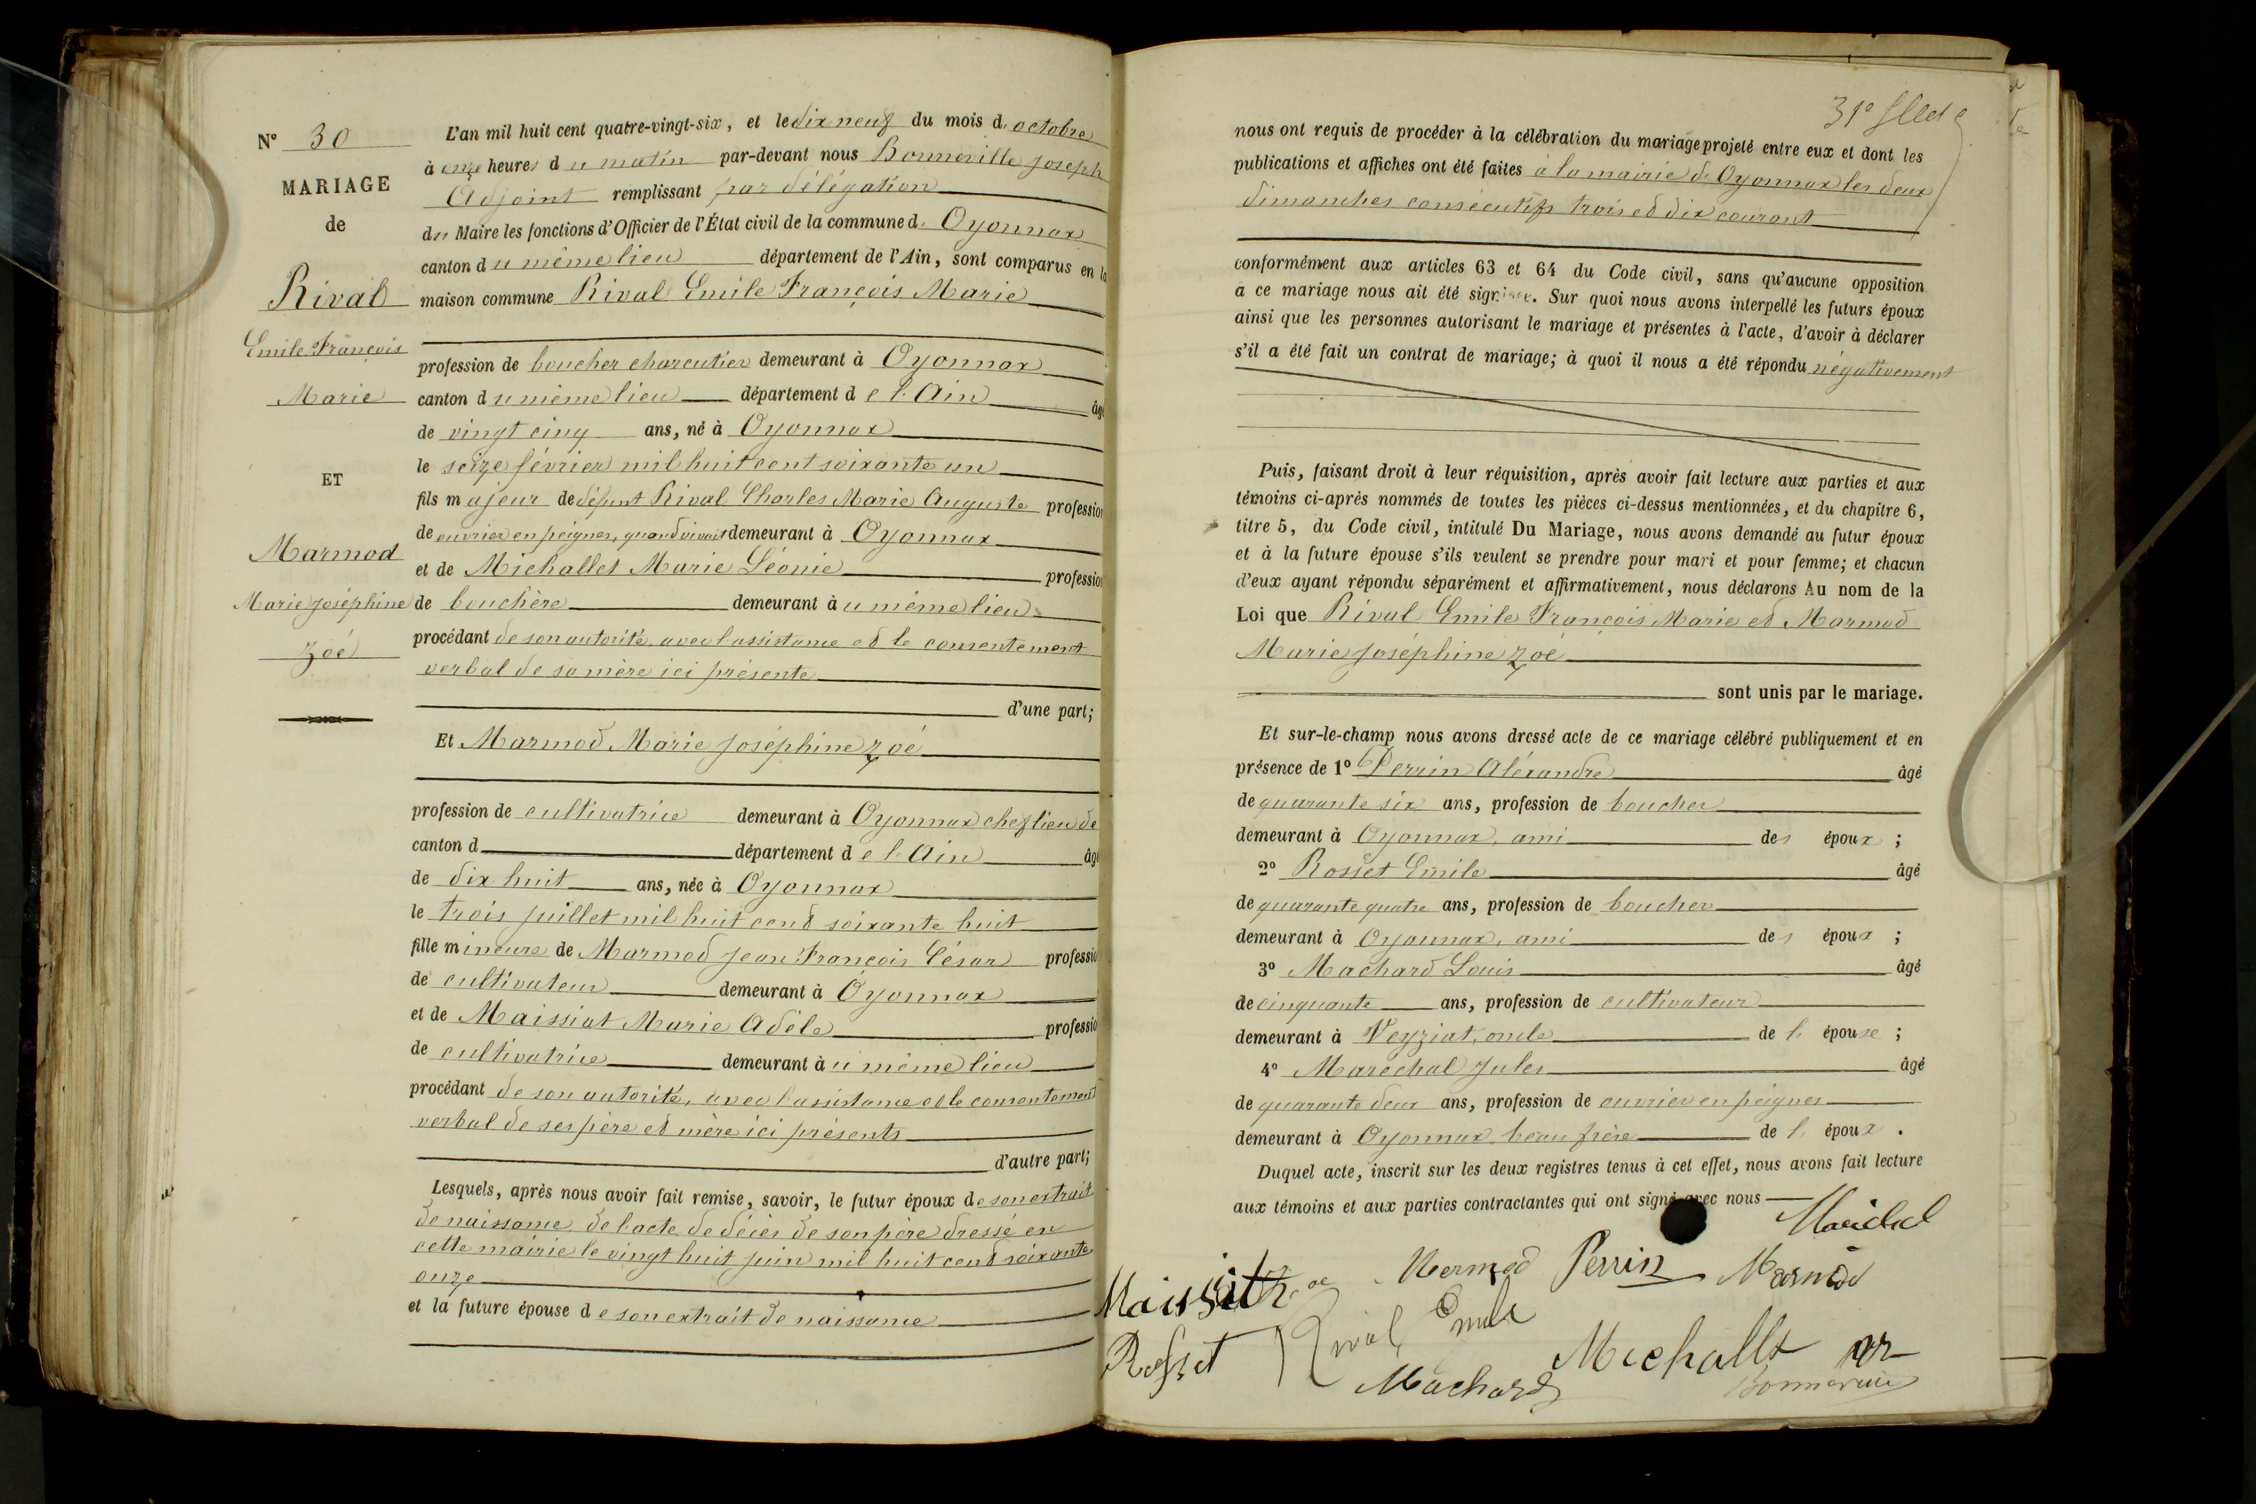 N° 30
MARIAGE
de
Rival
Emile François
Marie
ET
Marmod
Marie Joséphine
Zoé
L'an mil huit cent quatre-vingt-six, et le dix neuf du mois d. octobre
à onze heures du matin par-devant nous Bonneville Joseph
Adjoint remplissant par délégation
du Maire les fonctions d'Officier de l'État civil de la commune d. Oyonnax
canton du même lieu département de l'Ain, sont comparus en la
maison commune Rival Emile François Marie
profession de boucher charcutier demeurant à Oyonnax
canton du même lieu département de l'Ain âgé
de vingt cinq ans, né à Oyonnax
le seize février mil huit cent soixante un
fils majeur de défunt Rival Charles Marie Auguste profession
de ouvrier en peignes, quand vivait demeurant à Oyonnax
et de Michallet Marie Léonie profession
de bouchère demeurant au même lieu
procédant de son autorité avec l'assistance et le consentement
verbal de sa mère ici présente
d'une part;
Et Marmod Marie Joséphine Zoé
profession de cultivatrice demeurant à Oyonnax chef lieu de
canton d département de l'Ain âgé
de dix huit ans, née à Oyonnax
le trois juillet mil huit cent soixante huit
fille mineure de Marmod Jean François César professio
de cultivateur demeurant à Oyonnax
et de Maissiat Marie Adèle professio
de cultivatrice demeurant au même lieu
procédant de son autorité, avec l'assistance et le consentement
verbal de ses père et mère ici présents
d'autre part;
Lesquels, après nous avoir fait remise, savoir, le futur époux de son extrait
de naissance, de l'acte de décès de son père dressé en
cette mairie le vingt huit juin mil huit cent soixante
onze
et la future épouse de son extrait de naissance
31e
nous ont requis de procéder à la célébration du mariage projeté entre eux et dont les
publications et affiches ont été faites à la mairie d'Oyonnax les deux
dimanches consécutifs trois et dix courant
conformément aux articles 63 et 64 du Code civil, sans qu'aucune opposition
a ce mariage nous ait été signifiée. Sur quoi nous avons interpellé les futurs époux
ainsi que les personnes autorisant le mariage et présentes à l'acte, d'avoir à déclarer
s'il a été fait un contrat de mariage; à quoi il nous a été répondu négativement
Puis, faisant droit à leur réquisition, après avoir fait lecture aux parties et aux
témoins ci-après nommés de toutes les pièces ci-dessus mentionnées, et du chapitre 6,
titre 5, du Code civil, intitulé Du Mariage, nous avons demandé au futur époux
et à la future épouse s'ils veulent se prendre pour mari et pour femme; et chacun
d'eux ayant répondu séparément et affirmativement, nous déclarons Au nom de la
Loi que Rival Emile François Marie et Marmod
Marie Joséphine Zoé
sont unis par le mariage.
Et sur-le-champ nous avons dressé acte de ce mariage célébré publiquement et en
présence de 1° Perrin Aléxandre âgé
de quarante six ans, profession de boucher
demeurant à Oyonnax, ami des époux ;
2° Rosset Emile âgé
de quarante quatre ans, profession de boucher
demeurant à Oyonnax, ami des époux ;
3° Machard Louis âgé
de cinquante ans, profession de cultivateur
demeurant à Veyziat, oncle de l' épouse ;
4° Maréchal Jules âgé
de quarante deux ans, profession de ouvrier en peignes
demeurant à Oyonnax beau frère de l' époux .
Duquel acte, inscrit sur les deux registres tenus à cet effet, nous avons fait lecture
aux témoins et aux parties contractantes qui ont signé avec nous
Maréchal
Maissiat Zoé Mermod Perrin Marmod
Rosset Rival Emile
Machard Michallet
Bonneville